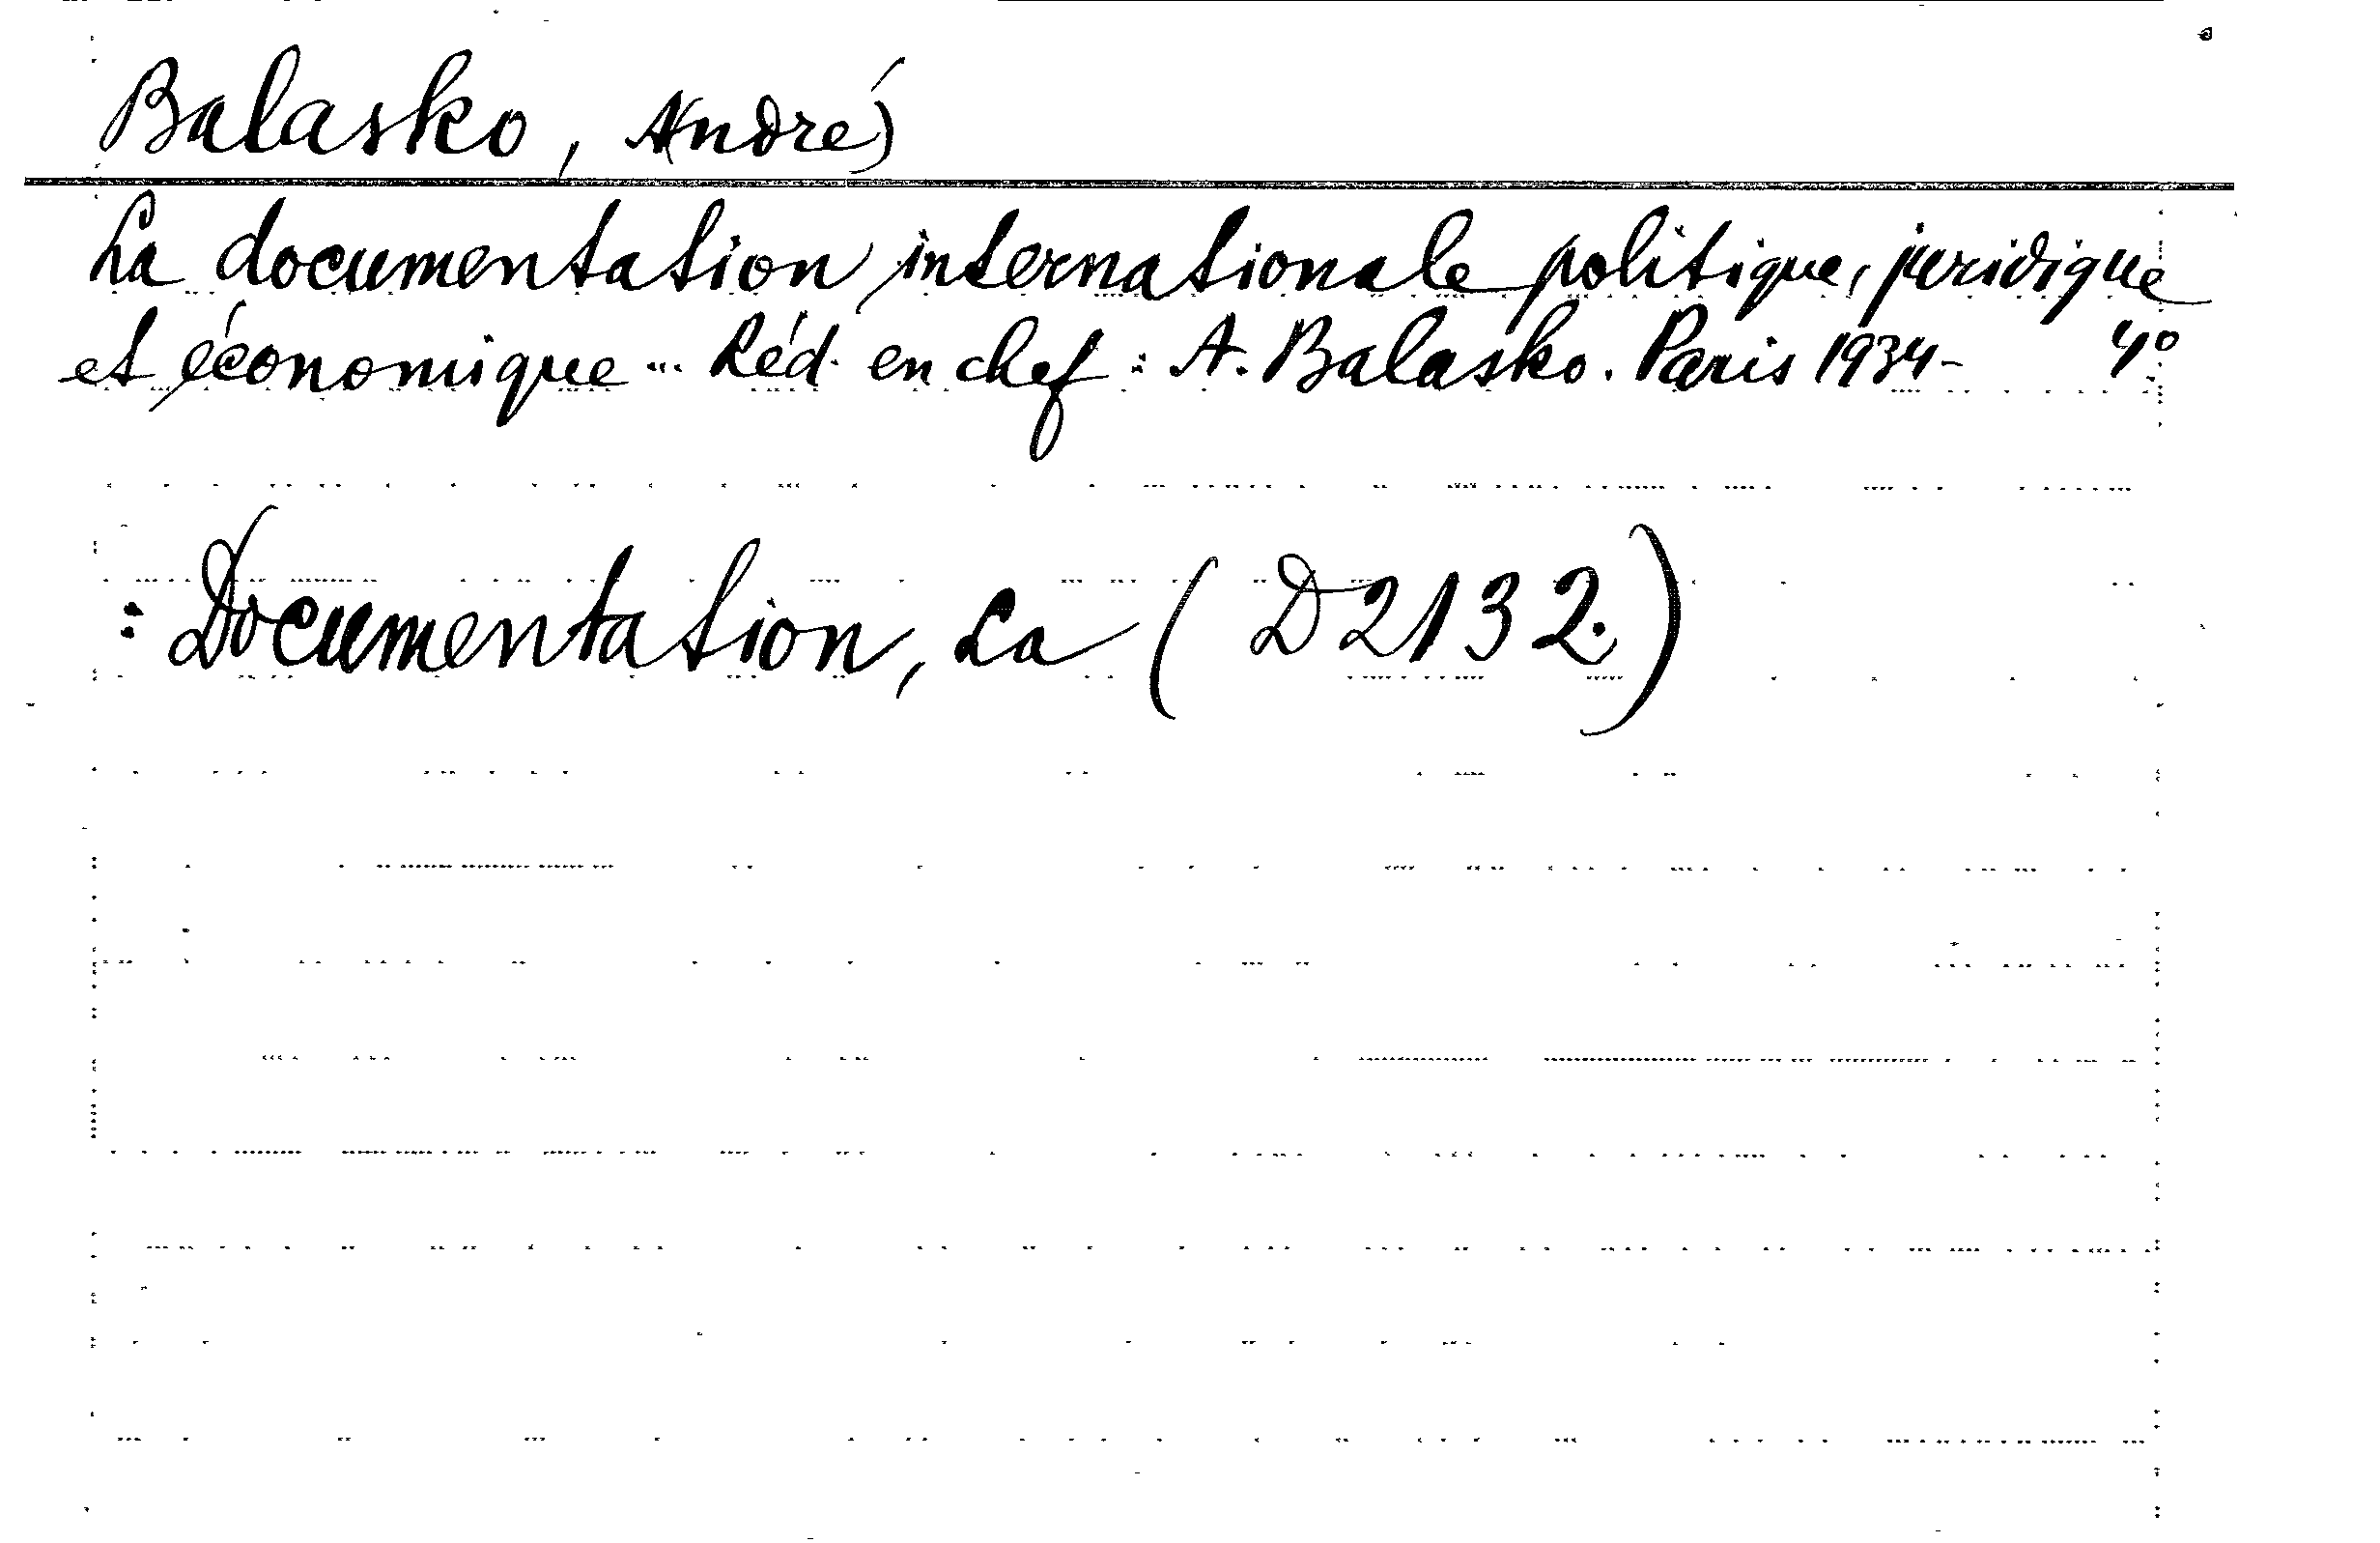 Balasko, A(ndré)
La documentation internationale politique, juridique
et économique ... Réd. en chef: A. Balasko. Paris 1934- 4°
: Documentation, La (D2132.)